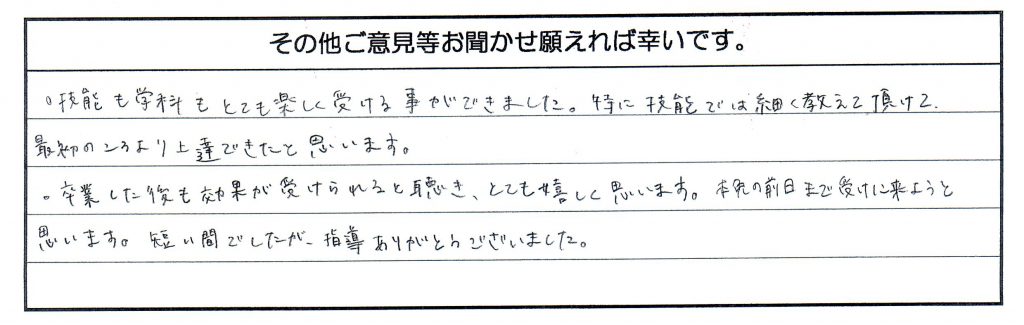 その他ご意見等お聞かせ願えれば幸いです。
。技能も学科もとても楽しく受ける事ができました。特に技能では細く教えて頂けて、
最初のころより上達できたと思います。
。卒業した後も効果が受けられると聴き、とても嬉しく思います。本免の前日まで受けに来ようと
思います。短い間でしたが、指導ありがとうございました。